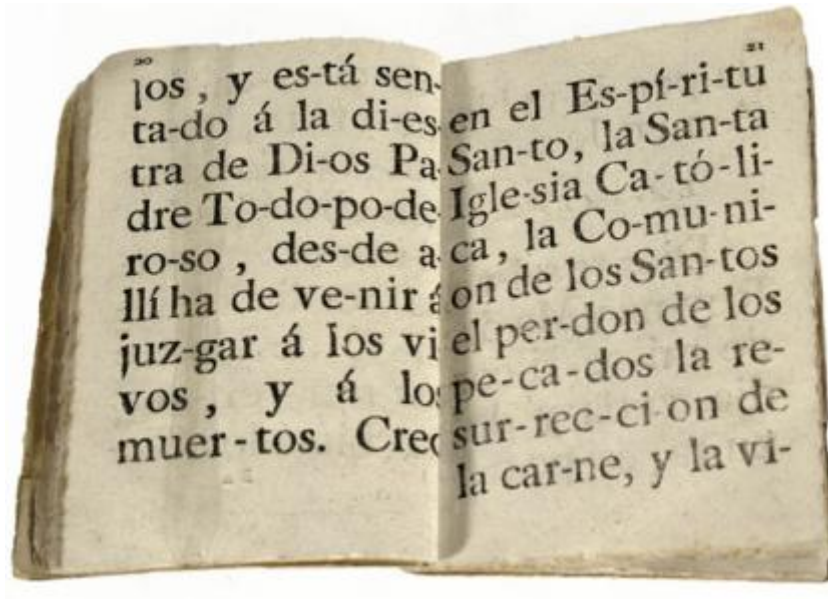 20
jos, y es-tá sen-
ta-do á la di-es-
tra de Di-os Pa-
dre To-do-po-de-
ro-so, des-de a-
llí ha de ve-nir á
juz-gar á los vi
vos, y á los
muer-tos. Creo
21
en el Es-pí-ri-tu
San-to, la San-ta
Igle-sia Ca-tó-li-
ca, la Co-mu-ni-
on de los San-tos
el per-don de los
pe-ca-dos la re-
sur-rec-ci on de
la car-ne, y la vi-